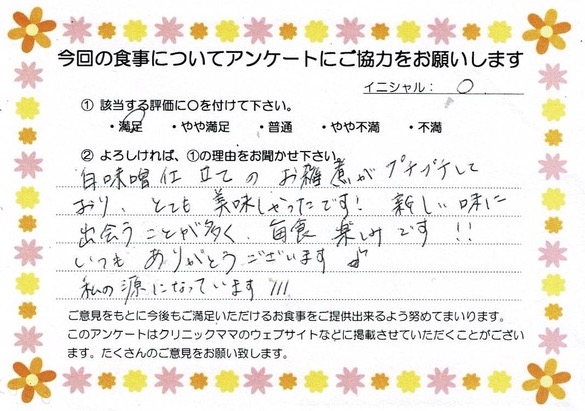 今回の食事についてアンケートにご協力をお願いします
イニシャル： O
① 該当する評価に○を付けて下さい。
・満足 ・やや満足 ・普通 ・やや不満 ・不満
② よろしければ、①の理由をお聞かせ下さい。
白味噌仕立ての お雑煮が プチプチして
おり、とても 美味しかったです! 新しい味に
出会うことが多く、毎食 楽しみです!!
いつも ありがとうございます♪
私の源になっています!!!
ご意見をもとに今後もご満足いただけるお食事をご提供出来るよう努めてまいります。
このアンケートはクリニックママのウェブサイトなどに掲載させていただくことがござい
ます。たくさんのご意見をお願い致します。